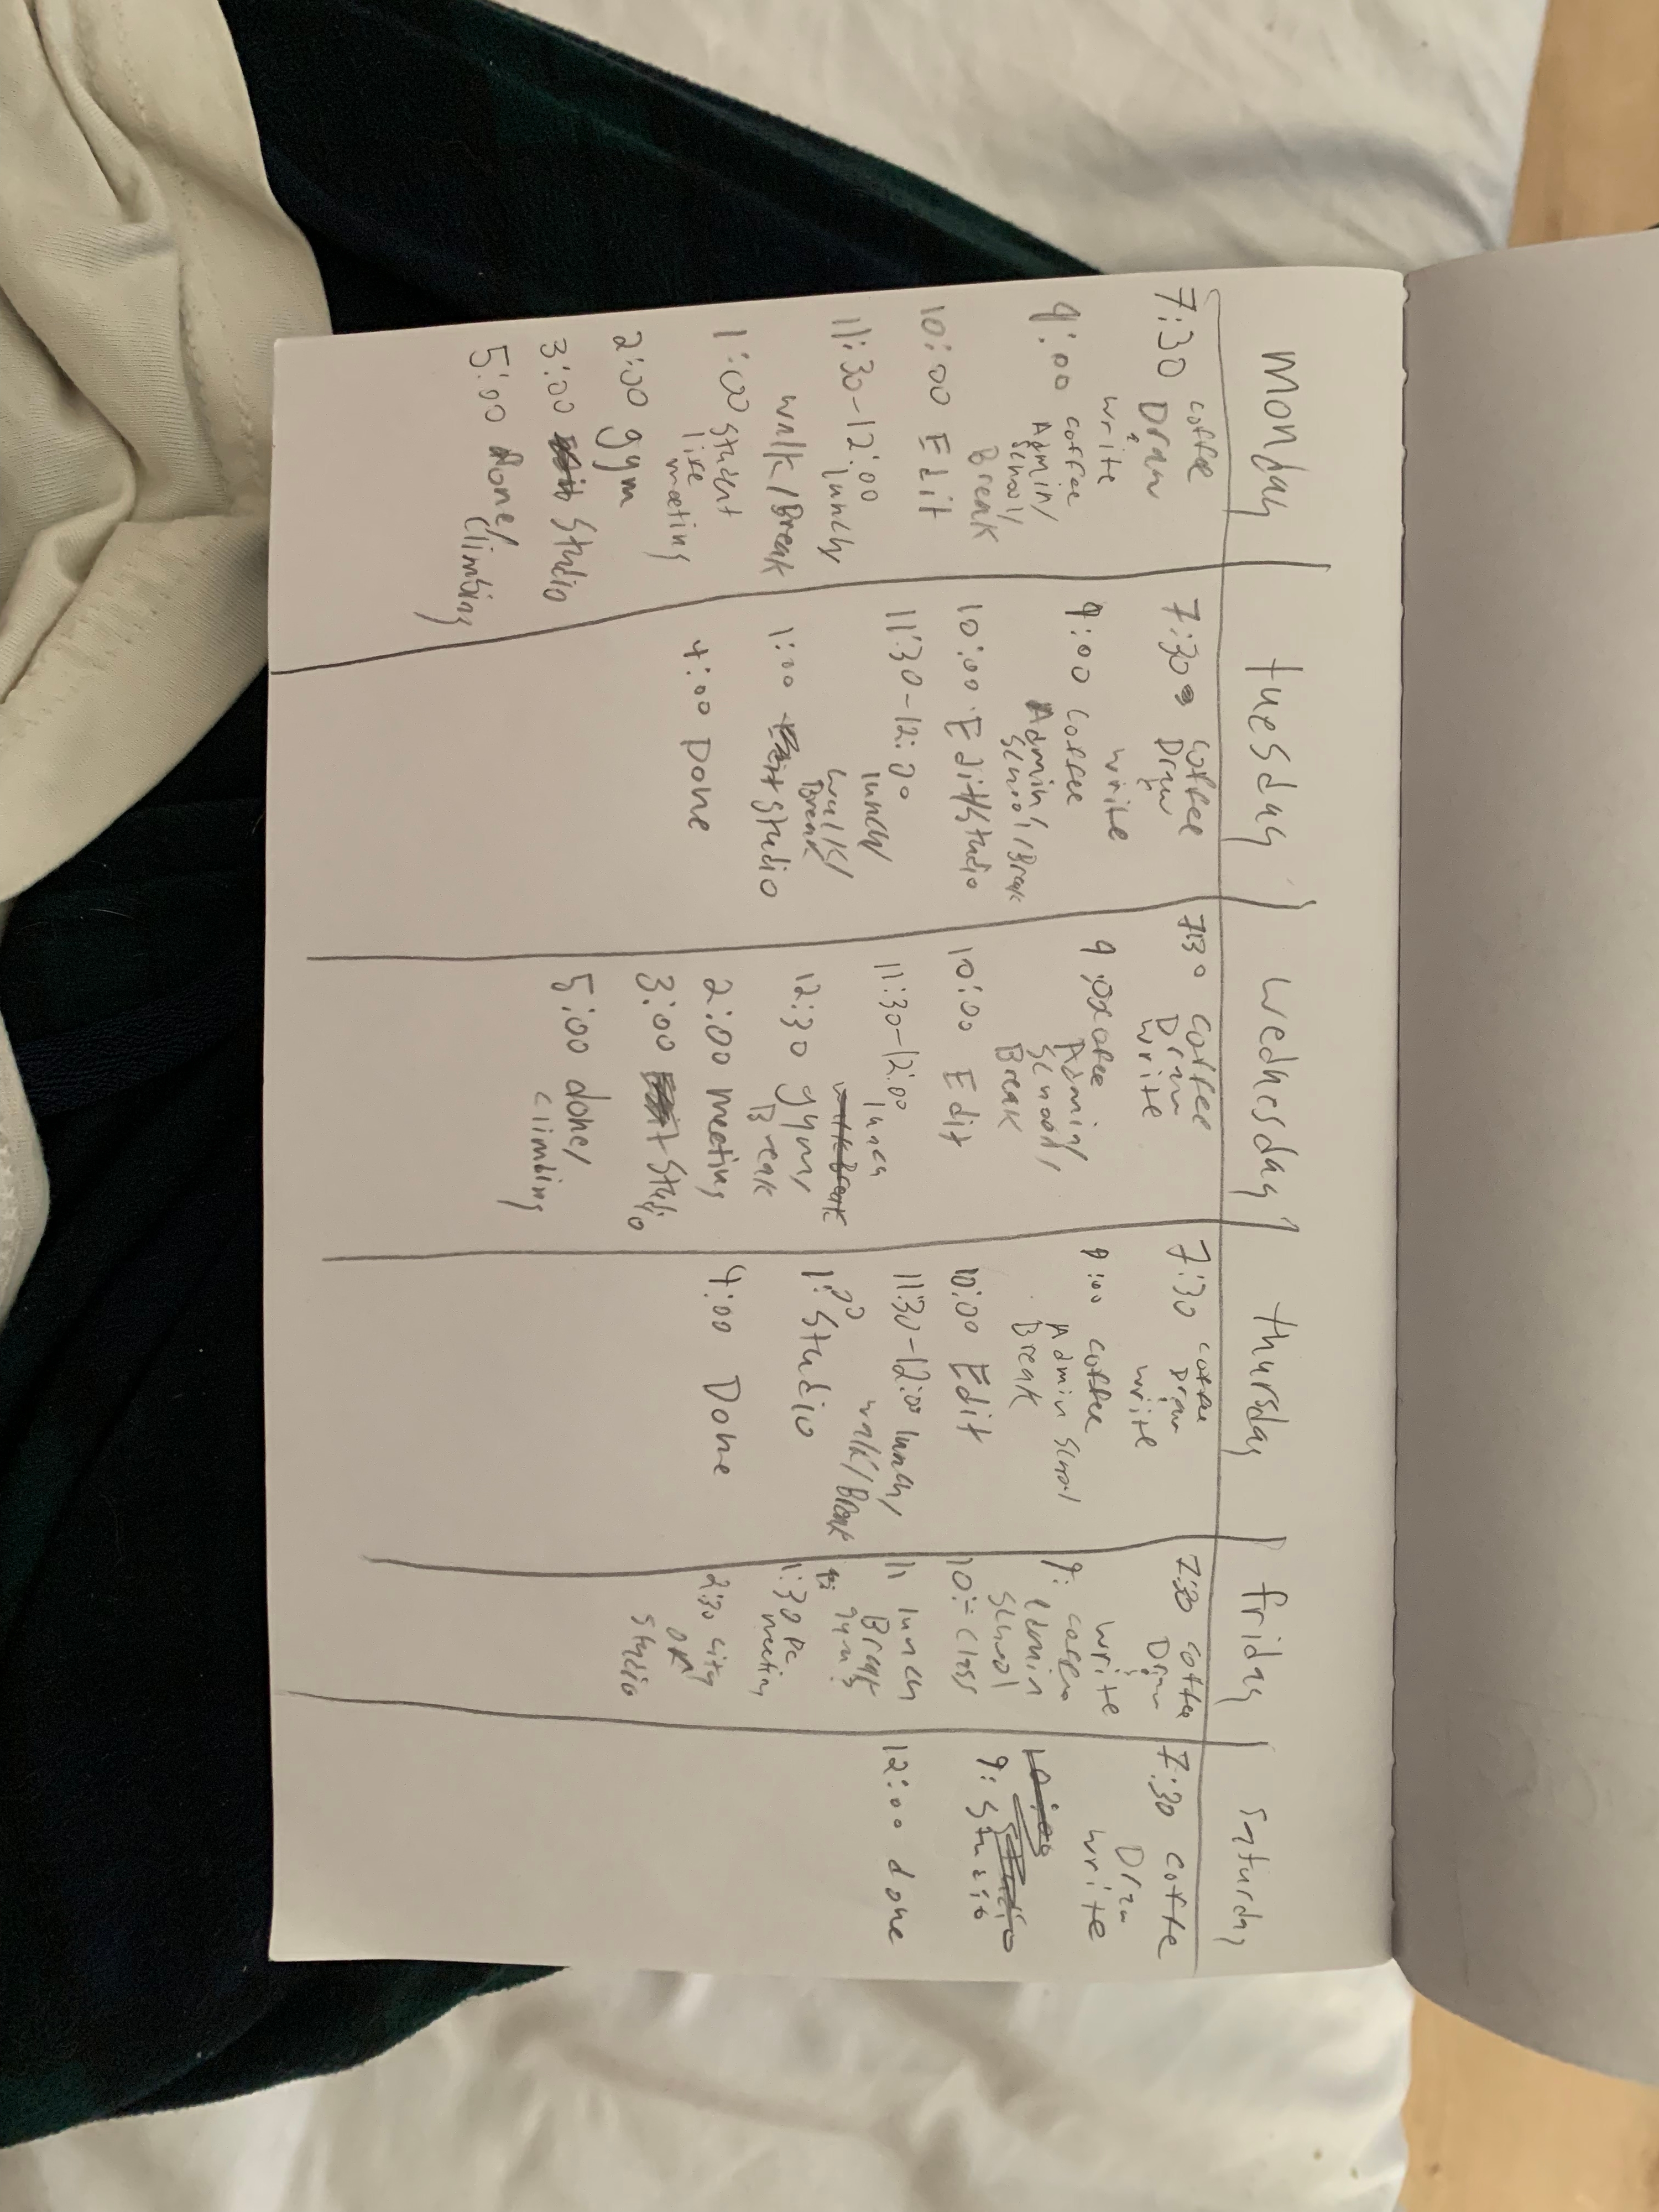 Monday
7:30 coffee
Draw
write
9:00 coffee
Admin/
school/
Break
10:00 Edit
11:30-12:00
lunch
walk/Break
1:00 student
life
meeting
2:00 gym
3:00 studio
5:00 Done/
climbing
tuesday
7:30 coffee
Draw
write
9:00 coffee
Admin/
school/Break
10:00 Edit/studio
11:30-12:00
lunch
walk/
Break
1:00 studio
4:00 Done
wednesday
7:30 coffee
Draw
write
9:00 coffee
Admin/
school/
Break
10:00 Edit
11:30-12:00
lunch
walk Break
12:30 gym/
Break
2:00 meeting
3:00 studio
5:00 done/
climbing
thursday
7:30 coffee
Draw
write
9:00 coffee
Admin school
Break
10:00 Edit
11:30-12:00 lunch/
walk/Break
1:00 studio
4:00 Done
friday
7:30 coffee
Draw
write
9: coffee
Admin
school
10:- class
11 lunch
Break
gym
1:30 PC
meeting
2:30 city
OR
studio
saturday
7:30 coffee
Draw
write
10:00
studio
9: studio
12:00 done